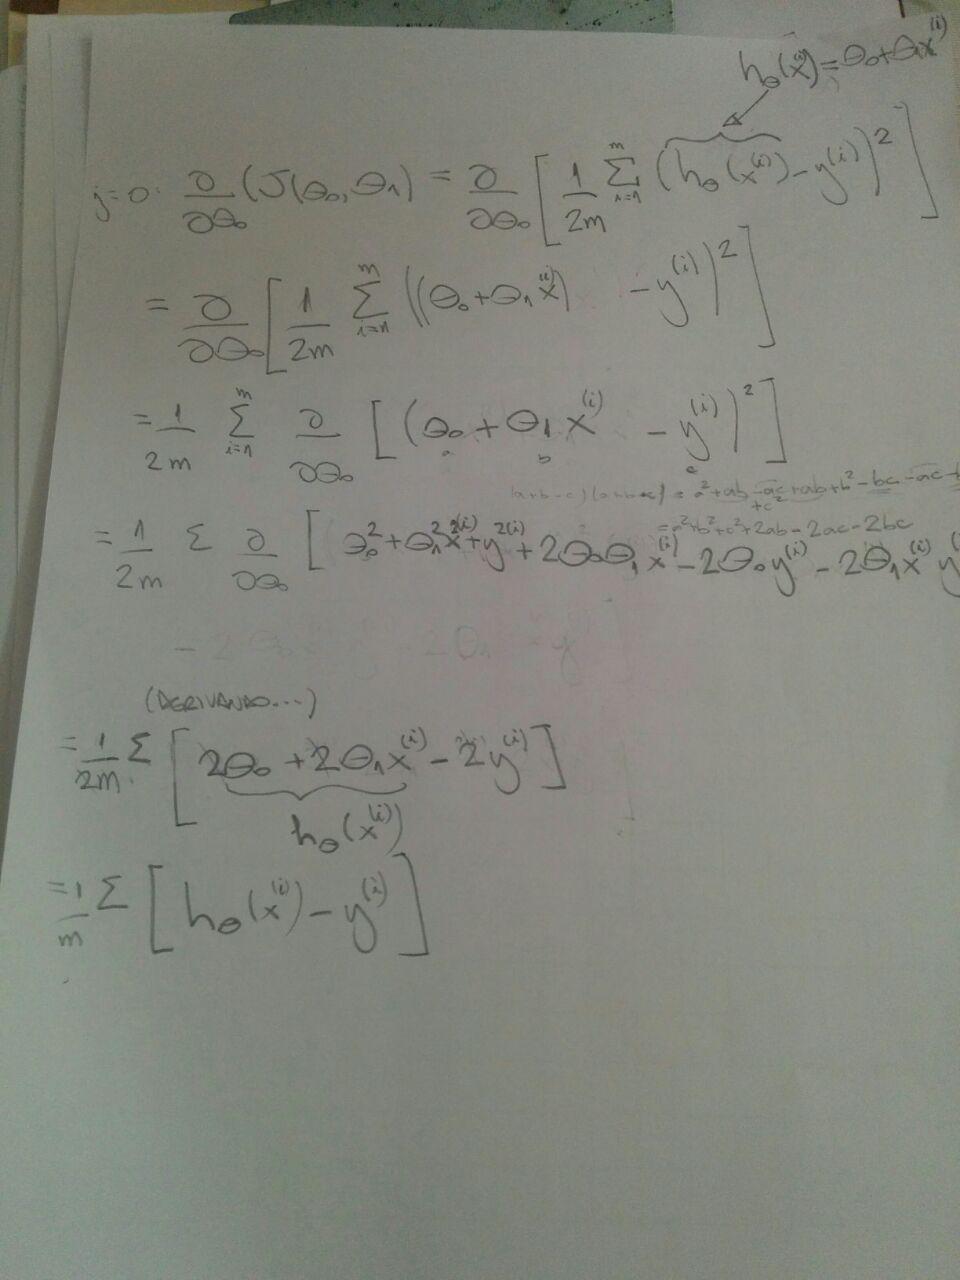 h_θ(x^(i)) = θ₀+θ₁x^(i)
j=0: ∂/∂θ₀ (J(θ₀,θ₁) = ∂/∂θ₀ [ 1/2m Σ_{i=1}^{m} (h_θ(x^(i)) - y^(i))² ]
= ∂/∂θ₀ [ 1/2m Σ_{i=1}^{m} ((θ₀+θ₁x^(i)) - y^(i))² ]
= 1/2m Σ_{i=1}^{m} ∂/∂θ₀ [ (θ₀ + θ₁x^(i) - y^(i))² ]
a b c
(a+b-c)(a+b-c) = a²+ab-ac+ab+b²-bc-ac-
+c²
=a²+b²+c²+2ab-2ac-2bc
= 1/2m Σ ∂/∂θ₀ [ θ₀²+θ₁²x^2(i)+y^2(i)+2θ₀θ₁x^(i)-2θ₀y^(i)-2θ₁x^(i)y
(DERIVANDO...)
= 1/2m Σ [ 2θ₀+2θ₁x^(i)-2y^(i) ]
h_θ(x^(i))
= 1/m Σ [ h_θ(x^(i))-y^(i) ]